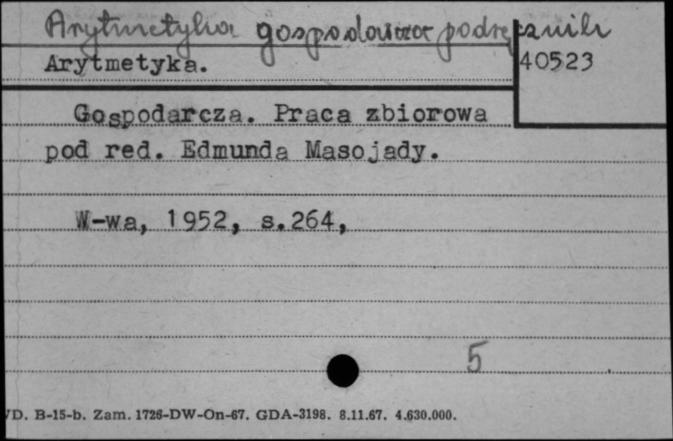 Arytmetyka gospodarcza podręcznik
Arytmetyka.
40523
Gospodarcza. Praca zbiorowa
pod red. Edmunda Masojady.
W-wa, 1952, s.264,
5
D. B-15-b. Zam. 1726-DW-On-67. GDA-3198. 8.11.67. 4.630.000.